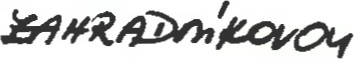 ZAHRADNÍKOVOU